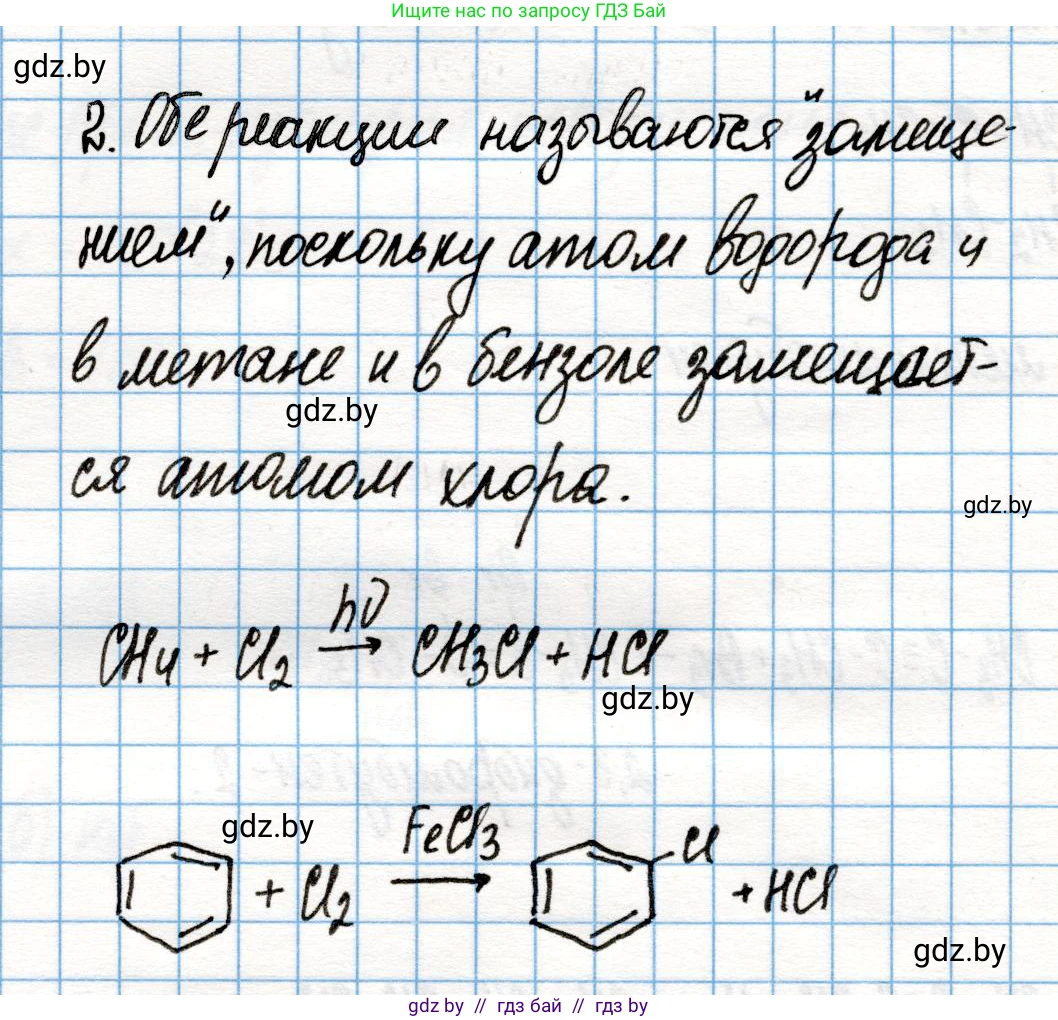 Ищите нас по запросу ГДЗ Бай
gdz.by
2. Обе реакции называются "замеще-
нием", поскольку атом водорода и
в метане и в бензоле замещает-
gdz.by
ся атомом хлора.
gdz.by
CH4 + Cl2 hν → CH3Cl + HCl
gdz.by
gdz.by
+ Cl2 FeCl3 → Cl + HCl
gdz.by
gdz.by // гдз бай // гдз by